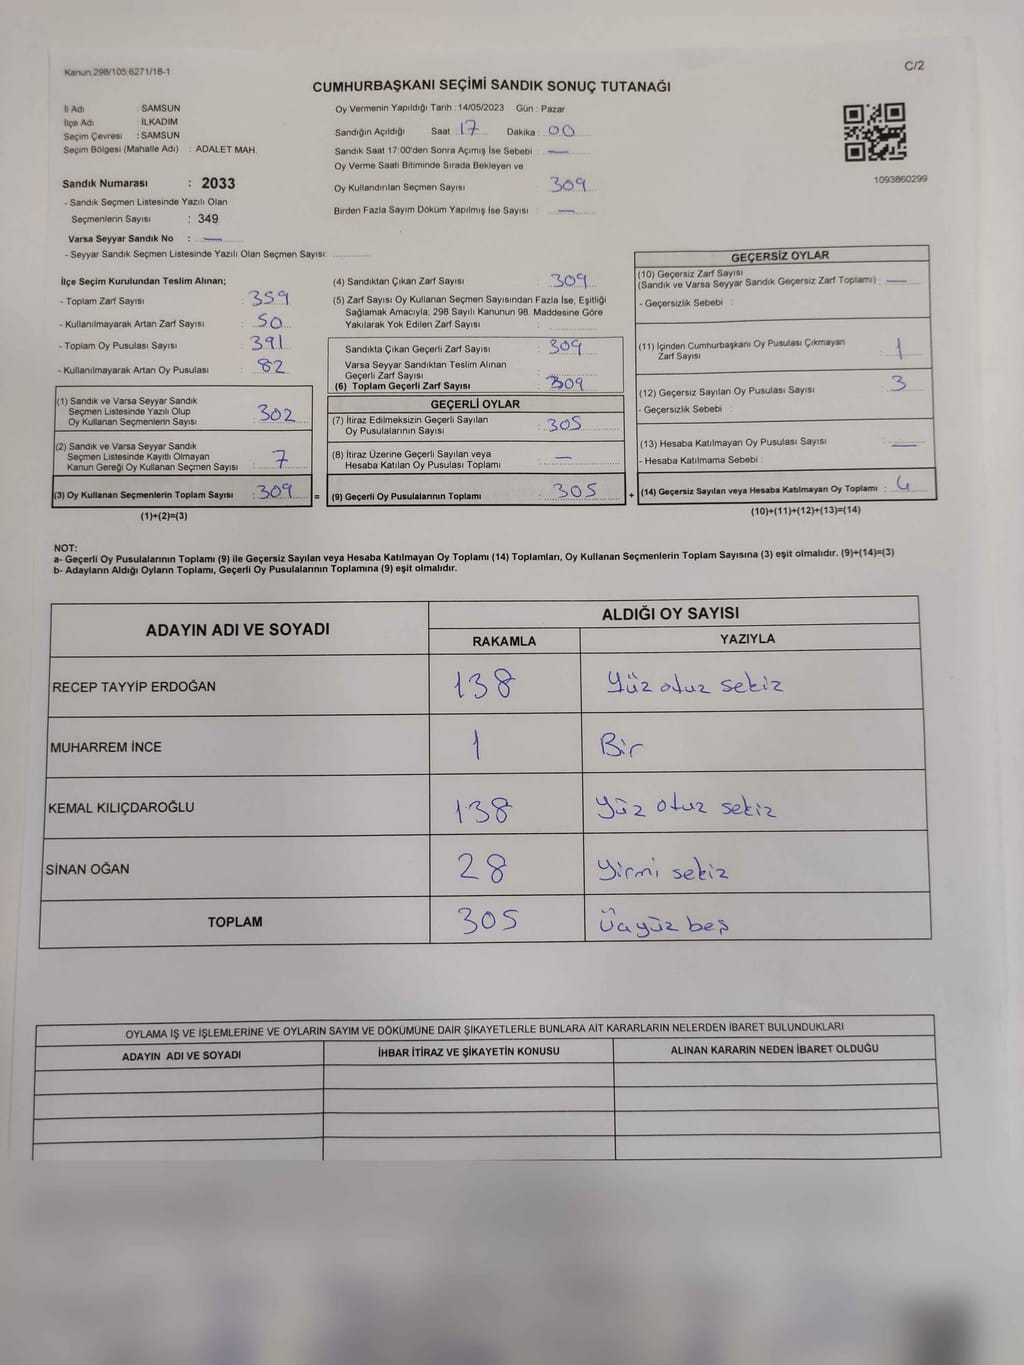 Kanun,298/105,6271/18-1
C/2
CUMHURBAŞKANI SEÇİMİ SANDIK SONUÇ TUTANAĞI
İl Adı : SAMSUN
İlçe Adı : İLKADIM
Seçim Çevresi : SAMSUN
Seçim Bölgesi (Mahalle Adı) : ADALET MAH.
Sandık Numarası : 2033
- Sandık Seçmen Listesinde Yazılı Olan
Seçmenlerin Sayısı : 349
Varsa Seyyar Sandık No : —
- Seyyar Sandık Seçmen Listesinde Yazılı Olan Seçmen Sayısı:
Oy Vermenin Yapıldığı Tarih :14/05/2023 Gün : Pazar
Sandığın Açıldığı Saat : 17 Dakika : 00
Sandık Saat 17:00'den Sonra Açımış İse Sebebi : —
Oy Verme Saati Bitiminde Sırada Bekleyen ve
Oy Kullandırılan Seçmen Sayısı : 309
Birden Fazla Sayım Döküm Yapılmış İse Sayısı : —
1093860299
İlçe Seçim Kurulundan Teslim Alınan;
- Toplam Zarf Sayısı : 359
- Kullanılmayarak Artan Zarf Sayısı : 50
- Toplam Oy Pusulası Sayısı : 391
- Kullanılmayarak Artan Oy Pusulası : 82
(1) Sandık ve Varsa Seyyar Sandık
Seçmen Listesinde Yazılı Olup
Oy Kullanan Seçmenlerin Sayısı : 302
(2) Sandık ve Varsa Seyyar Sandık
Seçmen Listesinde Kayıtlı Olmayan
Kanun Gereği Oy Kullanan Seçmen Sayısı : 7
(3) Oy Kullanan Seçmenlerin Toplam Sayısı : 309 =
(1)+(2)=(3)
(4) Sandıktan Çıkan Zarf Sayısı : 309
(5) Zarf Sayısı Oy Kullanan Seçmen Sayısından Fazla İse, Eşitliği
Sağlamak Amacıyla; 298 Sayılı Kanunun 98. Maddesine Göre
Yakılarak Yok Edilen Zarf Sayısı :
Sandıkta Çıkan Geçerli Zarf Sayısı : 309
Varsa Seyyar Sandıktan Teslim Alınan
Geçerli Zarf Sayısı :
(6) Toplam Geçerli Zarf Sayısı : 309
GEÇERLİ OYLAR
(7) İtiraz Edilmeksizin Geçerli Sayılan
Oy Pusulalarının Sayısı : 305
(8) İtiraz Üzerine Geçerli Sayılan veya
Hesaba Katılan Oy Pusulası Toplamı : —
(9) Geçerli Oy Pusulalarının Toplamı : 305 +
GEÇERSİZ OYLAR
(10) Geçersiz Zarf Sayısı
(Sandık ve Varsa Seyyar Sandık Geçersiz Zarf Toplamı) : —
- Geçersizlik Sebebi :
(11) İçinden Cumhurbaşkanı Oy Pusulası Çıkmayan
Zarf Sayısı : 1
(12) Geçersiz Sayılan Oy Pusulası Sayısı : 3
- Geçersizlik Sebebi :
(13) Hesaba Katılmayan Oy Pusulası Sayısı : —
- Hesaba Katılmama Sebebi :
(14) Geçersiz Sayılan veya Hesaba Katılmayan Oy Toplamı : 4
(10)+(11)+(12)+(13)=(14)
NOT:
a- Geçerli Oy Pusulalarının Toplamı (9) ile Geçersiz Sayılan veya Hesaba Katılmayan Oy Toplamı (14) Toplamları, Oy Kullanan Seçmenlerin Toplam Sayısına (3) eşit olmalıdır. (9)+(14)=(3)
b- Adayların Aldığı Oyların Toplamı, Geçerli Oy Pusulalarının Toplamına (9) eşit olmalıdır.
ADAYIN ADI VE SOYADI ALDIĞI OY SAYISI
RAKAMLA YAZIYLA
RECEP TAYYİP ERDOĞAN 138 Yüz otuz sekiz
MUHARREM İNCE 1 Bir
KEMAL KILIÇDAROĞLU 138 Yüz otuz sekiz
SİNAN OĞAN 28 Yirmi sekiz
TOPLAM 305 Üçyüz beş
OYLAMA İŞ VE İŞLEMLERİNE VE OYLARIN SAYIM VE DÖKÜMÜNE DAİR ŞİKAYETLERLE BUNLARA AİT KARARLARIN NELERDEN İBARET BULUNDUKLARI
ADAYIN ADI VE SOYADI İHBAR İTİRAZ VE ŞİKAYETİN KONUSU ALINAN KARARIN NEDEN İBARET OLDUĞU